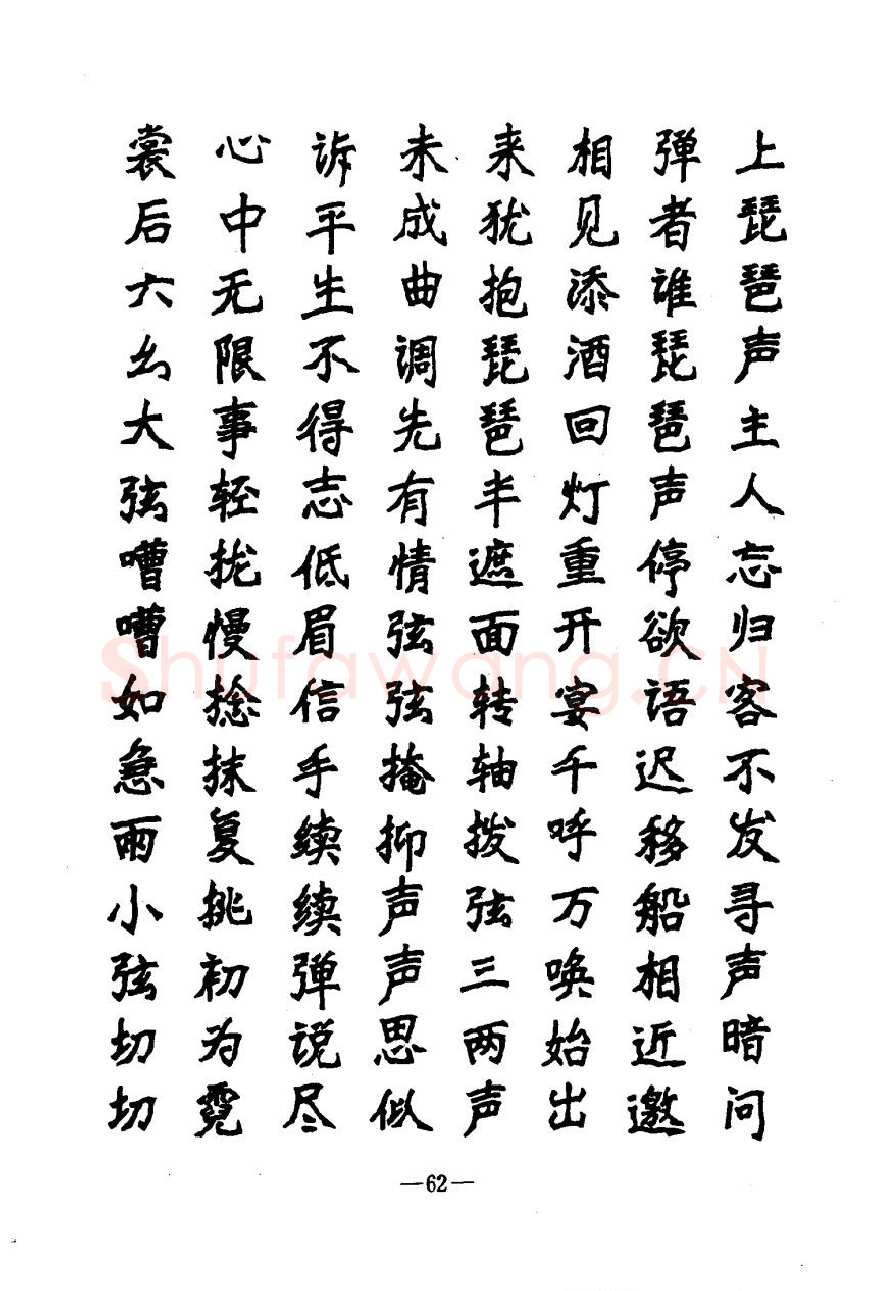 上琵琶声主人忘归客不发寻声暗问
弹者谁琵琶声停欲语迟移船相近邀
相见添酒回灯重开宴千呼万唤始出
来犹抱琵琶半遮面转轴拨弦三两声
未成曲调先有情弦弦掩抑声声思似
诉平生不得志低眉信手续续弹说尽
心中无限事轻拢慢捻抹复挑初为霓
裳后六幺大弦嘈嘈如急雨小弦切切
—62—
Shufawang.CN